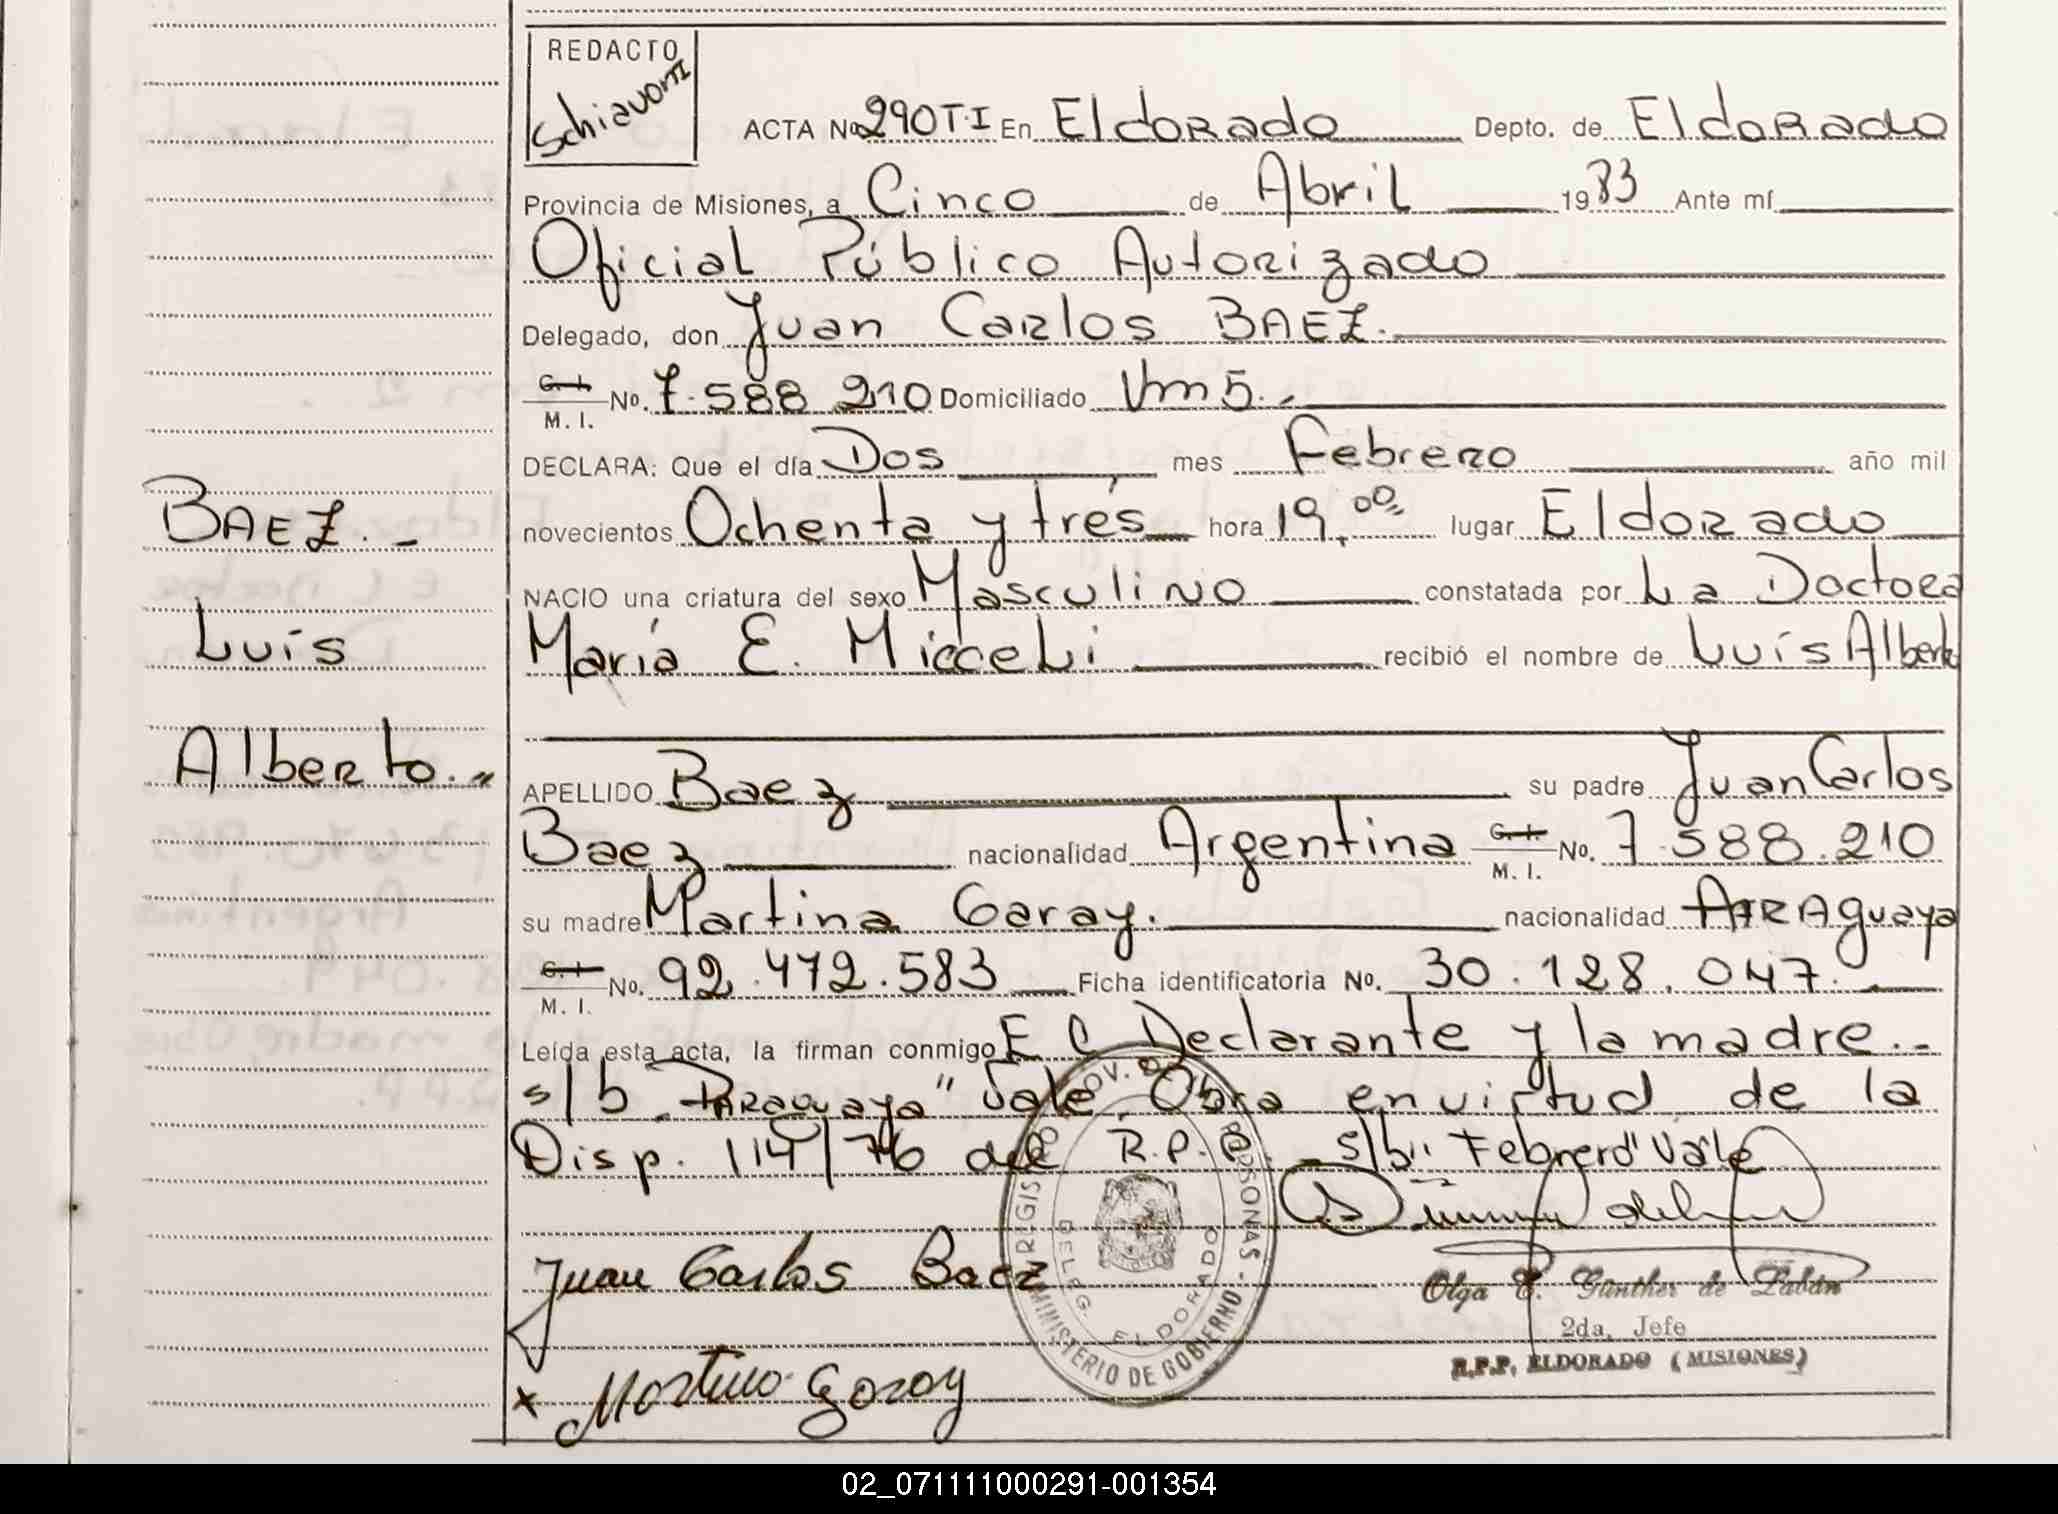 REDACTO
Schiavoni
ACTA No 290 T·I En Eldorado Depto. de Eldorado
Provincia de Misiones, a Cinco de Abril 1983 Ante mí
Oficial Público Autorizado
Delegado, don Juan Carlos BAEZ.
C. I.
M. I. No. 7.588 210 Domiciliado Km 5.-
DECLARA: Que el día Dos mes Febrero año mil
novecientos Ochenta y trés hora 19,00 lugar Eldorado
NACIO una criatura del sexo Masculino constatada por La Doctora
María E. Micceli recibió el nombre de Luís Alberto
BAEZ.-
Luís
Alberto.-
APELLIDO Baez su padre Juan Carlos
Baez nacionalidad Argentina C. I.
M. I. No. 7.588.210
su madre Martina Garay. nacionalidad PARAguaya
C. I.
M. I. No. 92.472.583 Ficha identificatoria No. 30.128.047.
Leída esta acta, la firman conmigo El Declarante y la madre.-
s/b "Paraguaya" Vale. Obra en virtud de la
Disp. 114/76 del R.P.P. s/b "Febrero" Vale
Juan Carlos Baez
x Martina Garay
REGISTRO PROV. DE PERSONAS
MINISTERIO DE GOBIERNO
DELEG. ELDORADO
Olga E. Günther de Zabán
2da. Jefe
R.P.P. ELDORADO (MISIONES)
02_071111000291-001354